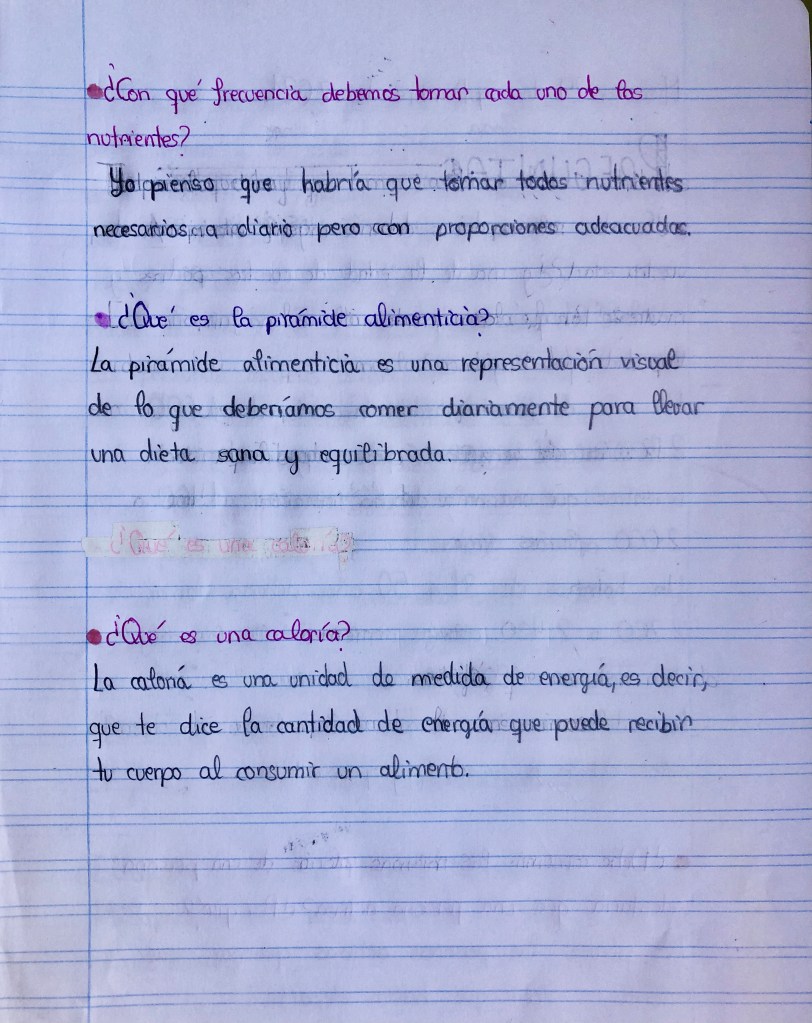 ¿Con qué frecuencia debemos tomar cada uno de los
nutrientes?
Yo pienso que habría que tomar todos nutrientes
necesarios a diario pero con proporciones adeacuadas.
¿Qué es la pirámide alimenticia?
La pirámide alimenticia es una representación visual
de lo que deberíamos comer diariamente para llevar
una dieta sana y equilibrada.
¿Qué es una
¿Qué es una caloría?
La caloría es una unidad de medida de energía, es decir,
que te dice la cantidad de energía que puede recibir
tu cuerpo al consumir un alimento.